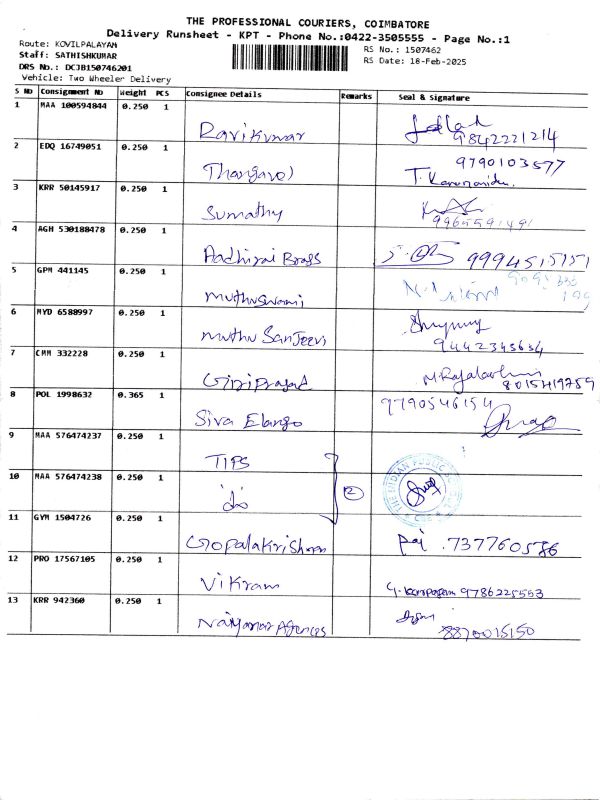 THE PROFESSIONAL COURIERS, COIMBATORE
Delivery Runsheet - KPT - Phone No.:0422-3505555 - Page No.:1
Route: KOVILPALAYAM
Staff: SATHISHKUMAR
DRS No.: DCJB150746201
Vehicle: Two Wheeler Delivery
RS No.: 1507462
RS Date: 18-Feb-2025
S No Consignment No Weight PCS Consignee Details Remarks Seal & Signature
1 MAA 100594844 0.250 1 Ravikumar 9842221214
2 EDQ 16749051 0.250 1 Thangavel 9790103577
3 KRR 50145917 0.250 1 Sumathy 9965591491
4 AGH 530188478 0.250 1 Aadhirai Brass 9994515151
5 GPM 441145 0.250 1 Muthuswami
6 MYD 6588997 0.250 1 Muthu Sanjeevi 9442343634
7 CMM 332228 0.250 1 Giriprasad 8015419759
8 POL 1998632 0.365 1 Siva Elango 9790546154
9 MAA 576474237 0.250 1 TIPS
10 MAA 576474238 0.250 1 do 2
THE INDIAN PUBLIC SCHOOL
11 GYM 1504726 0.250 1 Gopalakrishnan 737760586
12 PRO 17567105 0.250 1 Vikram 9786225553
13 KRR 942360 0.250 1 Nayanar Agences 8870015150